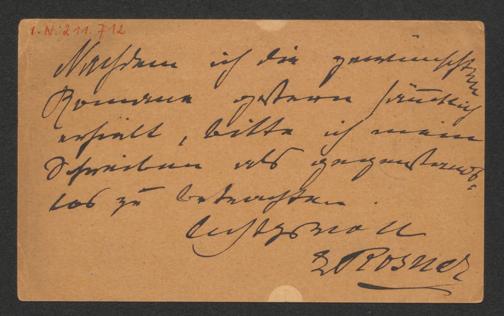 I.N. 211.712
Nachdem ich die gewünschten
Romane gestern sämtlich
erhielt, bitte ich mein
Schreiben als gegenstands-
los zu betrachten.
Achtungsvoll
Rosner